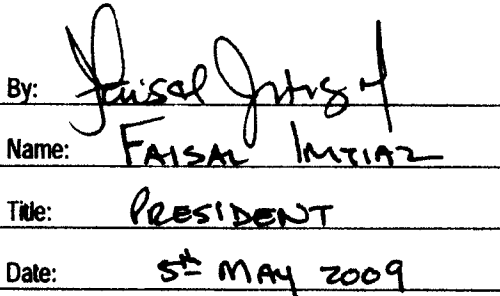 By: Faisal Imtiaz
Name: FAISAL IMTIAZ
Title: PRESIDENT
Date: 5th MAY 2009